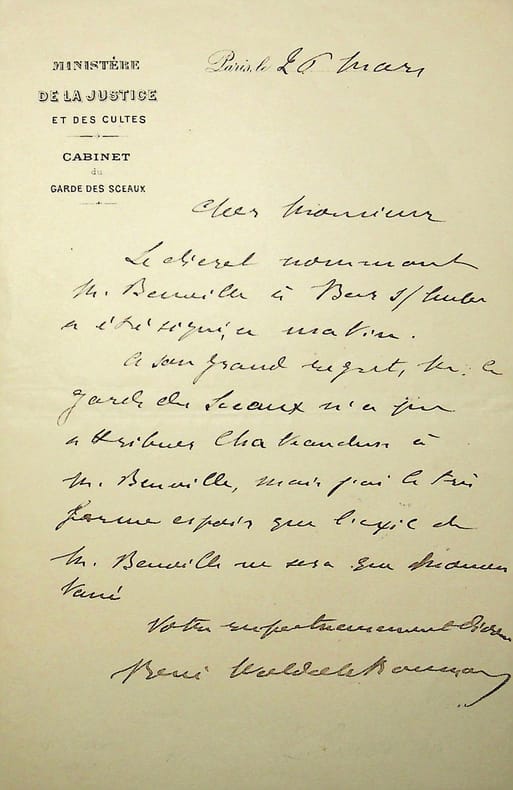 MINISTÈRE
DE LA JUSTICE
ET DES CULTES
CABINET
du
GARDE DES SCEAUX
Paris, le 26 Mars
Cher Monsieur
Le décret nommant
M. Benville à Bar s/ Aube
a été signé, ce matin.
A son grand regret, M. le
garde des Sceaux n'a pu
attribuer Chateaudun à
M. Benville, mais j'ai le très
ferme espoir que l'exil de
M. Benville ne sera que momen
tané
Votre respectueusement dévoué
René